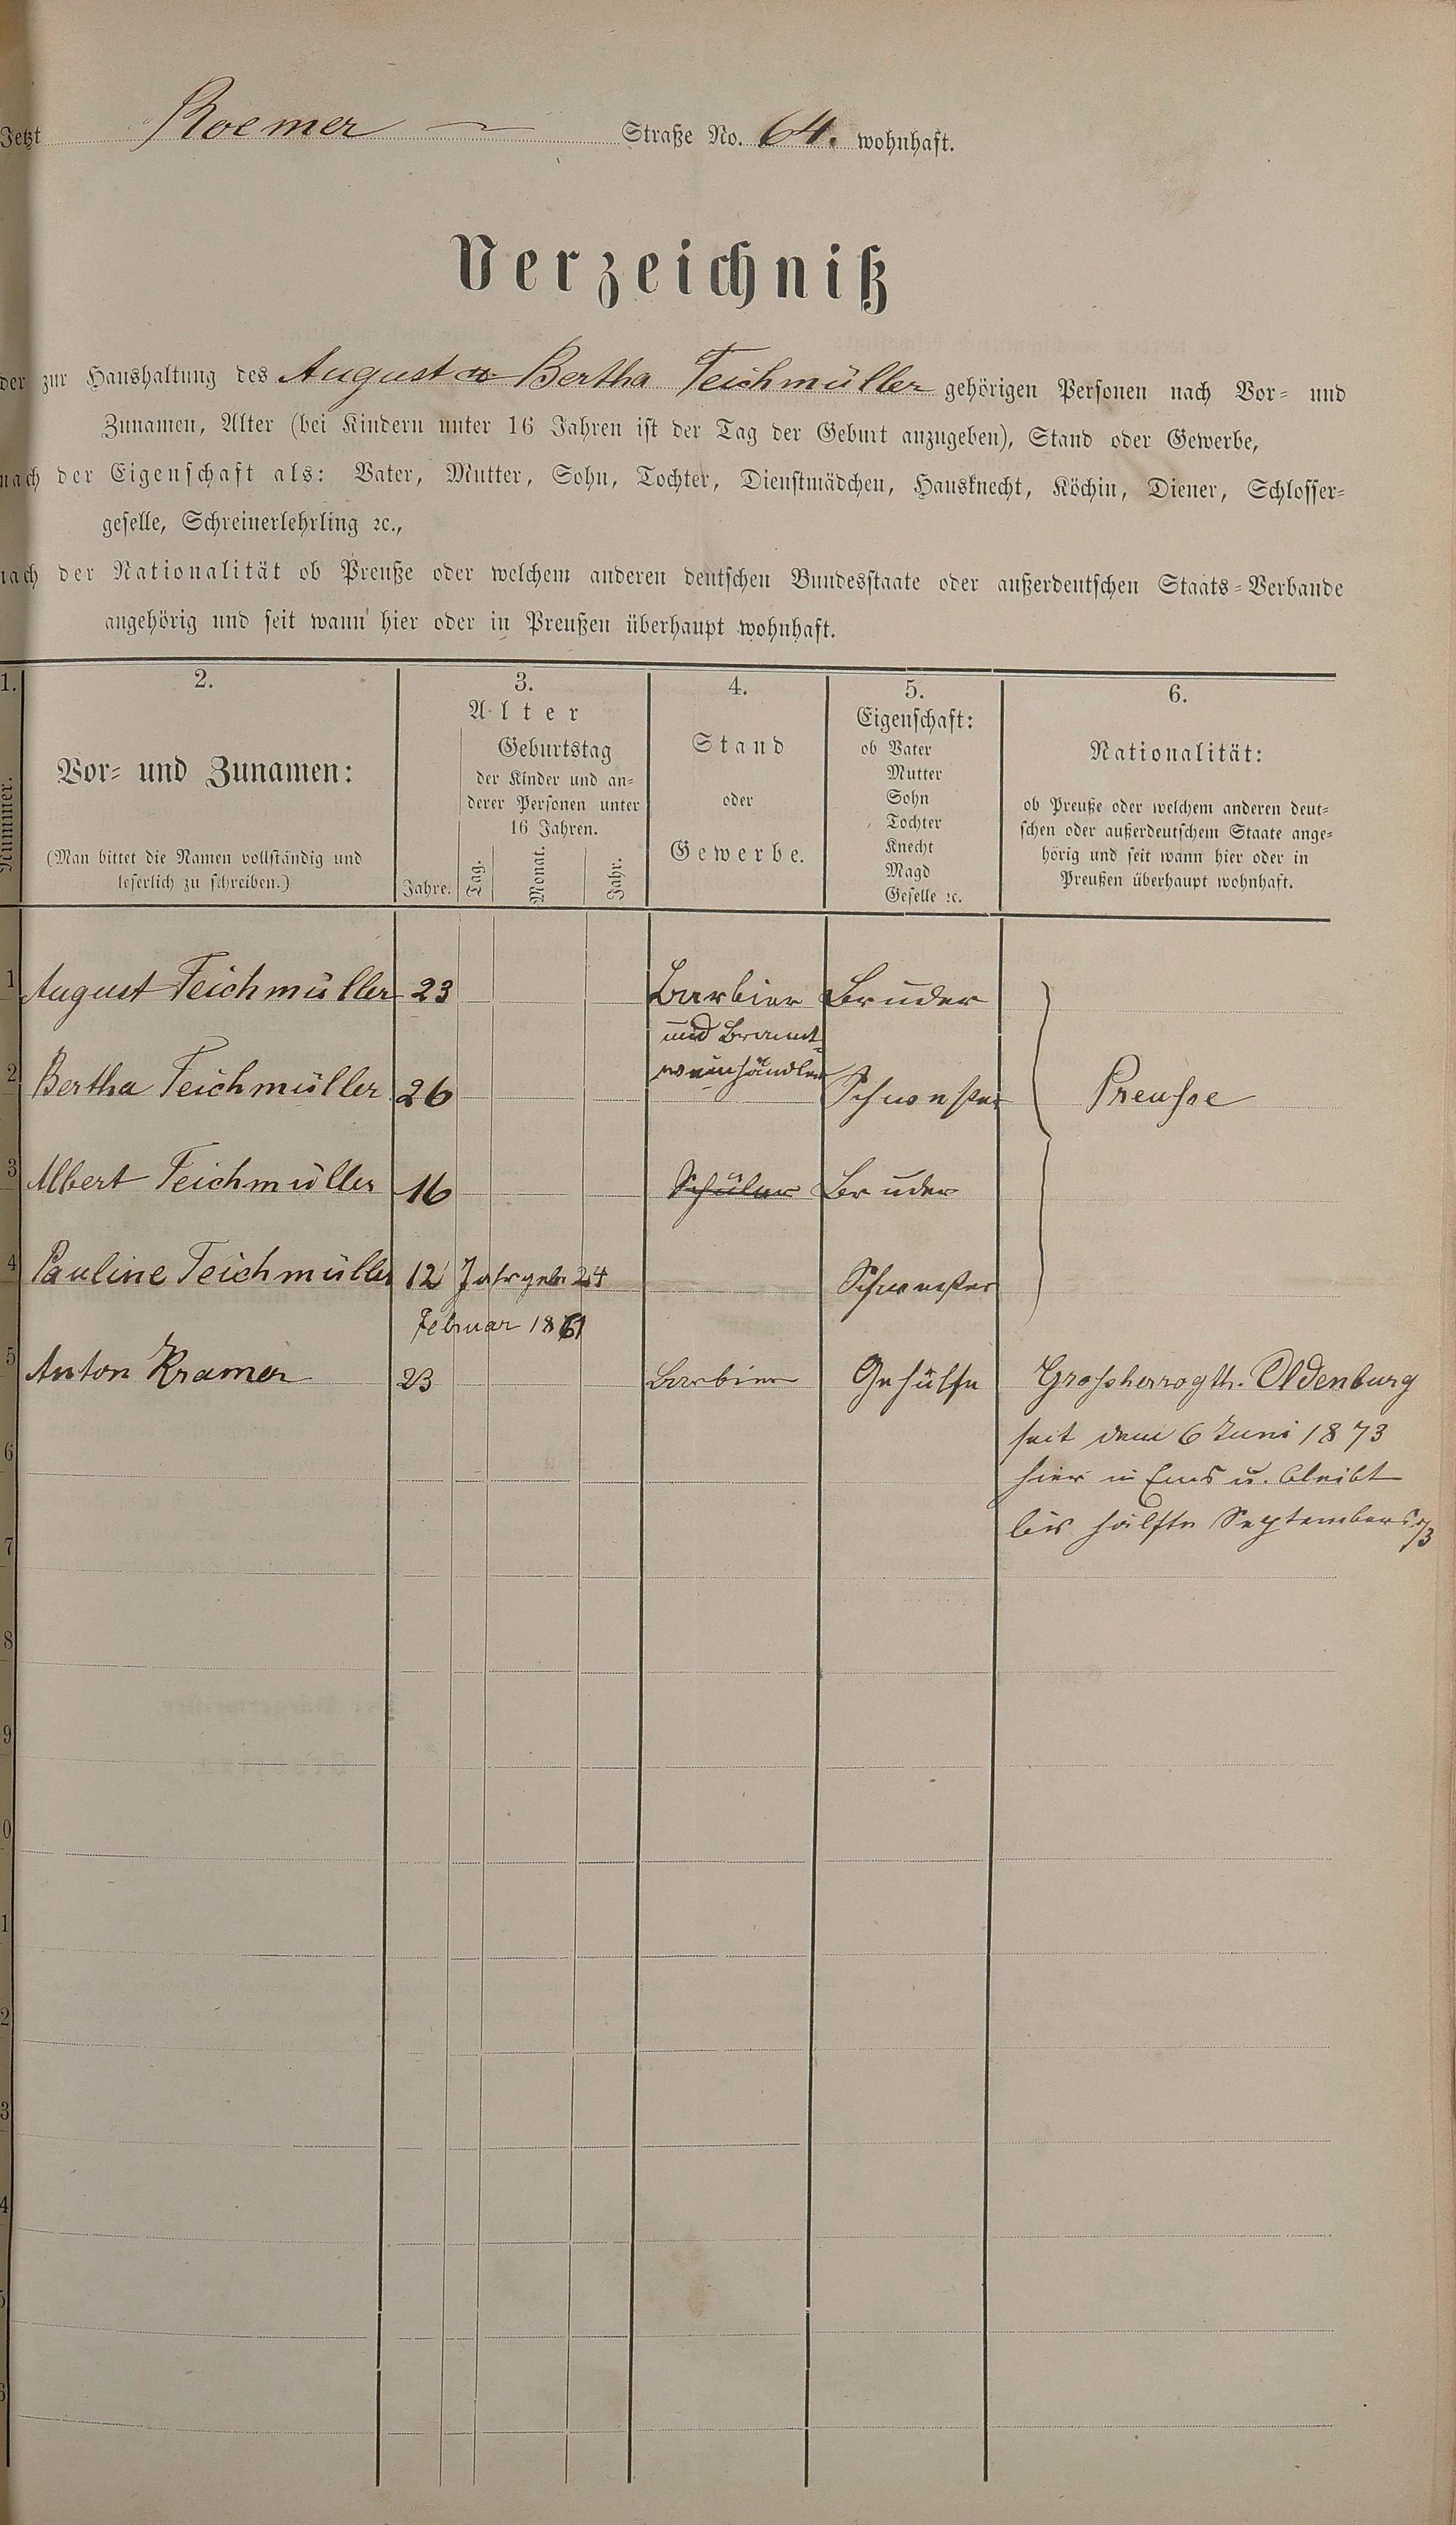 Jetzt Roemer — Straße No. 64. wohnhaft.
Verzeichniß
der zur Haushaltung des August u Bertha Teichmüller gehörigen Personen nach Vor- und
Zunamen, Alter (bei Kindern unter 16 Jahren ist der Tag der Geburt anzugeben), Stand oder Gewerbe,
nach der Eigenschaft als: Vater, Mutter, Sohn, Tochter, Dienstmädchen, Hausknecht, Köchin, Diener, Schlosser-
geselle, Schreinerlehrling ꝛc.,
nach der Nationalität ob Preuße oder welchem anderen deutschen Bundesstaate oder außerdeutschen Staats-Verbande
angehörig und seit wann hier oder in Preußen überhaupt wohnhaft.
1.
Nummer.
2.
Vor- und Zunamen:
(Man bittet die Namen vollständig und
leserlich zu schreiben.)
3.
Alter
Geburtstag
der Kinder und an-
derer Personen unter
16 Jahren.
Jahre. Tag. Monat. Jahr.
4.
Stand
oder
Gewerbe.
5.
Eigenschaft:
ob Vater
Mutter
Sohn
Tochter
Knecht
Magd
Geselle ꝛc.
6.
Nationalität:
ob Preuße oder welchem anderen deut-
schen oder außerdeutschem Staate ange-
hörig und seit wann hier oder in
Preußen überhaupt wohnhaft.
1 August Teichmüller 23 Barbier Bruder
und Brannt-
weinhändler
2 Bertha Teichmüller 26 Schwester Preuße
3 Albert Teichmüller 16 Schüler Bruder
4 Pauline Teichmüller 12 Jahr geb. 24 Schwester
Februar 1861
5 Anton Kramer 23 Barbier Gehülfe Großherzogth. Oldenburg
seit dem 6 Juni 1873
6 hier in Ems u. bleibt
bis hälfte September 73
7
8
9
0
1
2
3
4
5
6